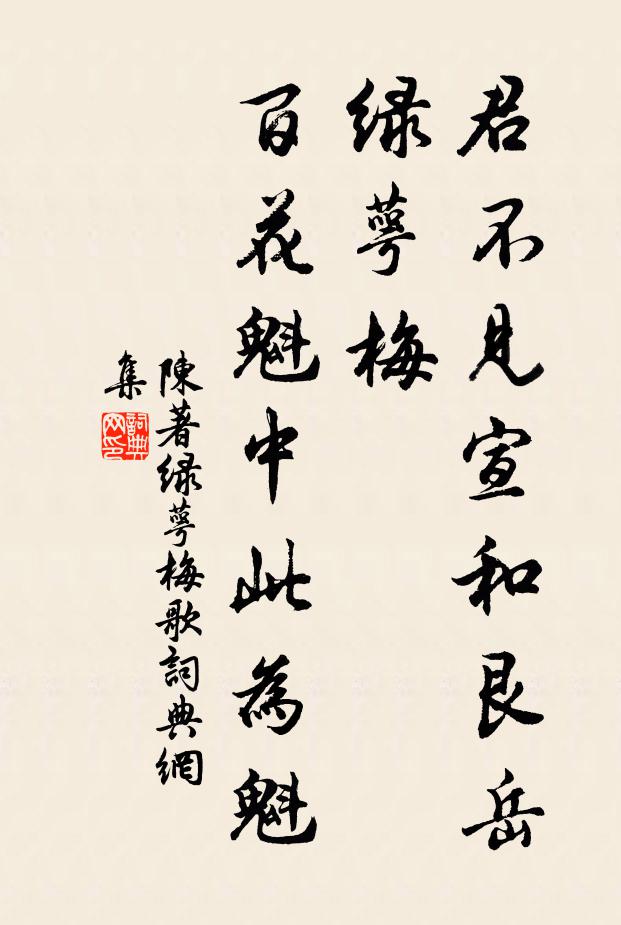 君不見宣和艮岳
緑萼梅
百花魁中此為魁
陳著緑萼梅歌詞典網
集
詞典
网印